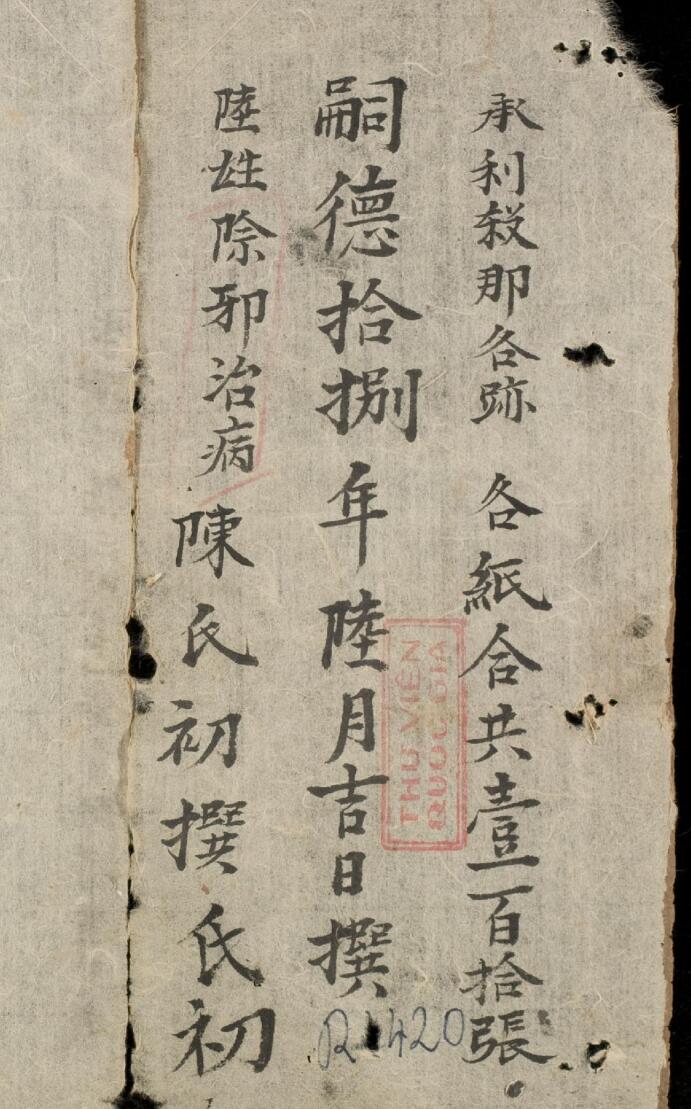 承利殺那各跡 各紙合共壹百拾張
嗣德拾捌年陸月吉日撰
陸姓除邪治病陳氏初撰氏初
THƯ VIỆN
QUỐC GIA
R1420